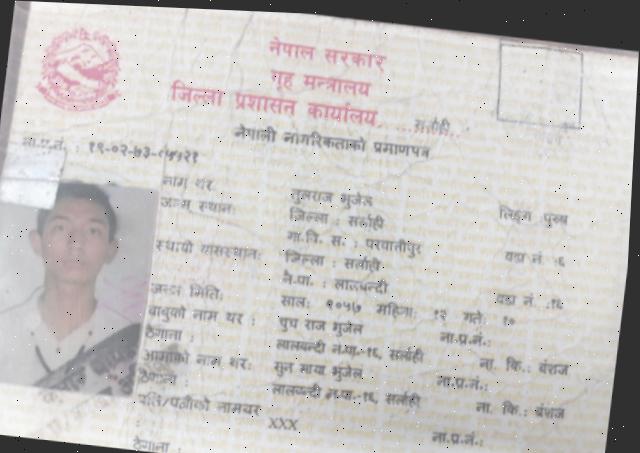 नेपाल सरकार
गृह मन्त्रालय
जिल्ला प्रशासन कार्यालय, सर्लाही
नेपाली नागरिकताको प्रमाणपत्र
ना.प्र.नं. :
नाम थर: तुलराज भुजेल लिङ्ग: पुरुष
जन्म स्थान: जिल्ला : सर्लाही
गा.वि. स. : परवानीपुर वडा नं. :६
स्थायी वासस्थान: जिल्ला : सर्लाही
न.पा. : लालबन्दी वडा नं. :१६
जन्म मिति: साल: २०५७ महिना: १२ गते: १०
बाबुको नाम थर : राज भुजेल ना.प्र.नं.:
ठेगाना : लालबन्दी न.पा.-१६, सर्लाही ना. कि.: वंशज
आमाको नाम थर: सुन माया भुजेल ना.प्र.नं.:
ठेगाना : लालबन्दी न.पा.-१६, सर्लाही ना. कि.: वंशज
पति/पत्नीको नामथर : XXX
ठेगाना : ना.प्र.नं.: